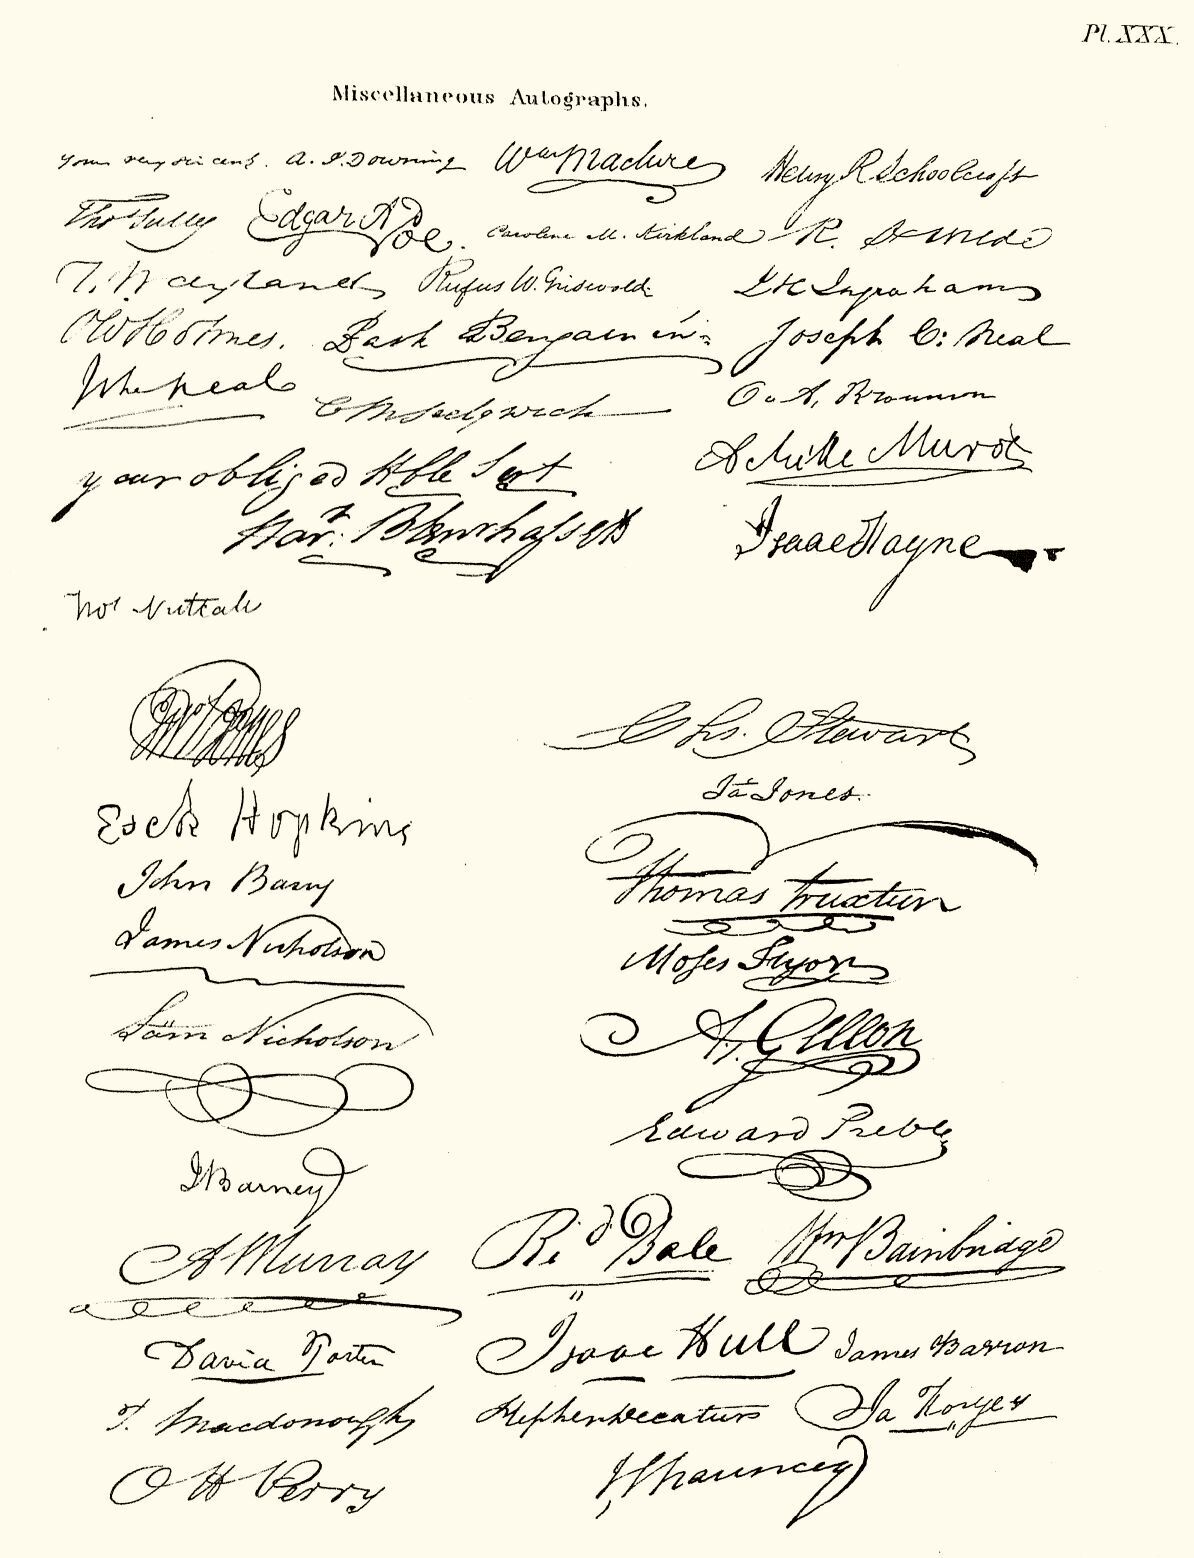 Pl. XXX.
Miscellaneous Autographs.
Yours very sincerely. A. J. Downing Wm Maclure Henry R Schoolcraft
Thos Sully Edgar A Poe. Caroline M. Kirkland R. H Wilde
F. Wayland Rufus W. Griswold J H Ingraham
O W Holmes. Park Benjamin Joseph C: Neal
John Neal C M Sedgwick O. A. Brownson
your obliged Hble Servt Achille Murat
Har: Blennerhassett Isaac Hayne
Thos Nuttall
Chs. Stewart
Ja Jones.
Esek Hopkins
John Barry Thomas Truxtun
James Nicholson Moses
Sam Nicholson A. Gillon
Edward Preble
J Barney
A Murray Rid Dale Wm Bainbridge
David Porter Isaac Hull James Barron
T. Macdonough Stephen Decatur
O H Perry I Chauncey